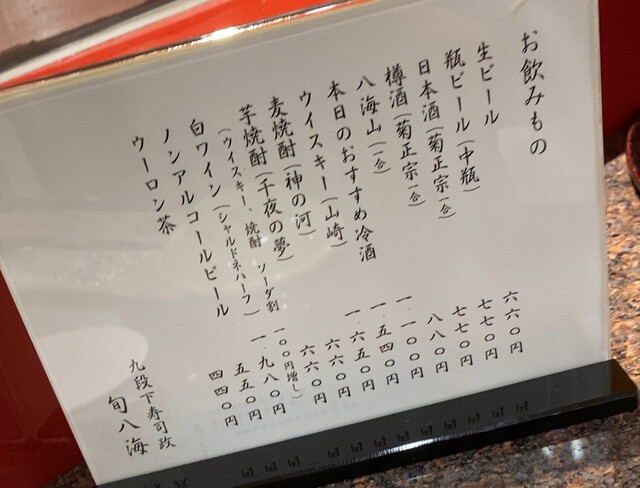 お飲みもの
生ビール 六六〇円
瓶ビール(中瓶) 七七〇円
日本酒(菊正宗一合) 七七〇円
樽酒(菊正宗一合) 八八〇円
八海山(一合) 一.一〇〇円
本日のおすすめ冷酒 一.五四〇円
ウイスキー(山崎) 一.六五〇円
麦焼酎(神の河) 六六〇円
芋焼酎(千夜の夢) 六六〇円
(ウイスキー、焼酎 ソーダ割 一〇〇円増し)
白ワイン(シャルドネハーフ) 一.九八〇円
ノンアルコールビール 五五〇円
ウーロン茶 四四〇円
九段下寿司政
旬八海